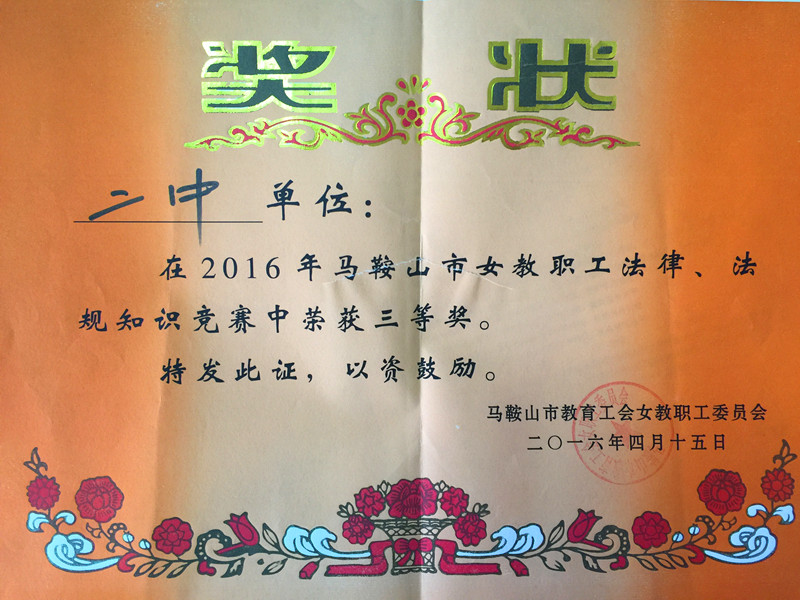 奖状
二中 单位：
在2016年马鞍山市女教职工法律、法
规知识竞赛中荣获三等奖。
特发此证，以资鼓励。
马鞍山市教育工会女教职工委员会
二〇一六年四月十五日